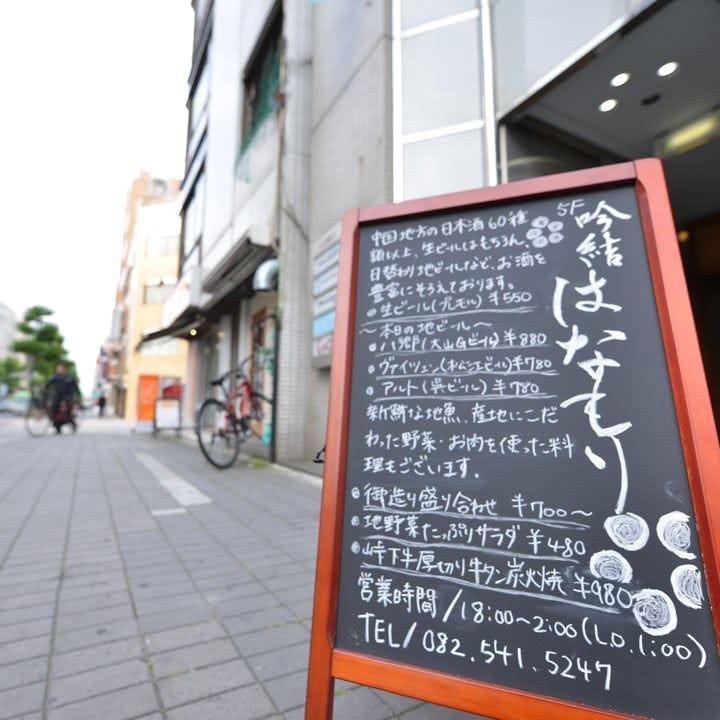 5F
吟結
はなもり
中国地方の日本酒60種
類以上、生ビールはもちろん、
日替わり地ビールなど、お酒を
豊富にそろえております。
生ビール(プレモル) ¥550
〜本日の地ビール〜
八郷(大山Gビール) ¥880
ヴァイツェン(松江ビール) ¥780
アルト(呉ビール) ¥780
新鮮な地魚、産地にこだ
わった野菜・お肉を使った料
理もございます。
御造り盛り合わせ ¥700〜
地野菜たっぷりサラダ ¥480
峠下牛厚切り牛タン炭火焼 ¥980
営業時間/18:00〜2:00(L.O.1:00)
TEL/082.541.5247